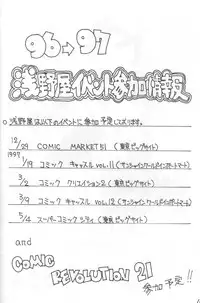 96→97
浅野屋イベント参加情報
○浅野屋は以下のイベントに参加予定しております。
12/29 COMIC MARKET 51 (東京ビッグサイト)
1997
1/19 コミック キャッスル vol.11 (サンシャインワールドインポートマート)
3/2 コミック クリエイション2 (東京ビッグサイト)
3/9 コミック キャッスル vol.12 (サンシャインワールドインポートマート)
5/4 スーパーコミックシティ (東京ビッグサイト)
and
COMIC
REVOLUTION 21
参加予定!!